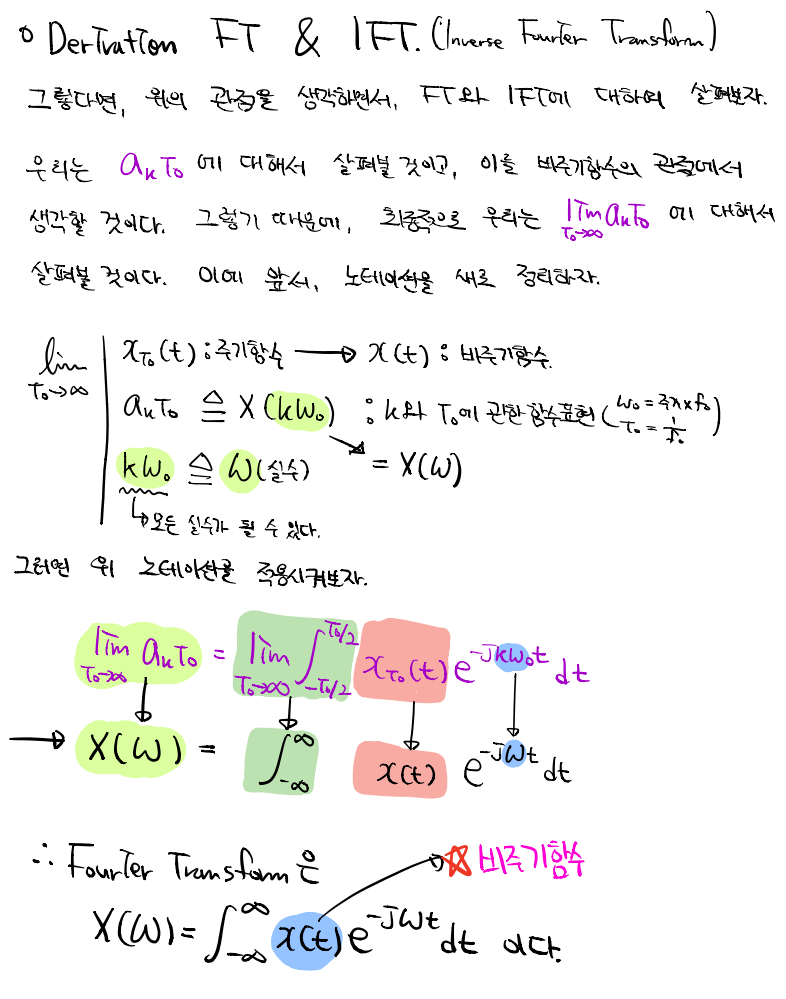 ○ Derivation FT & IFT. (Inverse Fourier Transform)
그렇다면, 위의 관점을 생각하면서, FT와 IFT에 대하여 살펴보자.
우리는 aₖT₀ 에 대해서 살펴볼 것이고, 이를 비주기함수의 관점에서
생각할 것이다. 그렇기 때문에, 최종적으로 우리는 lim_{T₀→∞} aₖT₀ 에 대해서
살펴볼 것이다. 이에 앞서, 노테이션을 새로 정리하자.
lim_{T₀→∞} | x_{T₀}(t) : 주기함수 → x(t) : 비주기함수.
aₖT₀ ≜ X(kω₀) : k와 T₀에 관한 함수표현 (ω₀ = 2π×f₀, T₀ = 1/f₀)
kω₀ ≜ ω(실수) = X(ω)
↳ 모든 실수가 될 수 있다.
그러면 위 노테이션을 적용시켜보자.
lim_{T₀→∞} aₖT₀ = lim_{T₀→∞} ∫_{-T₀/2}^{T₀/2} x_{T₀}(t) e^{-jkω₀t} dt
→ X(ω) = ∫_{-∞}^{∞} x(t) e^{-jωt} dt
∴ Fourier Transform 은 ☆ 비주기함수
X(ω) = ∫_{-∞}^{∞} x(t) e^{-jωt} dt 이다.